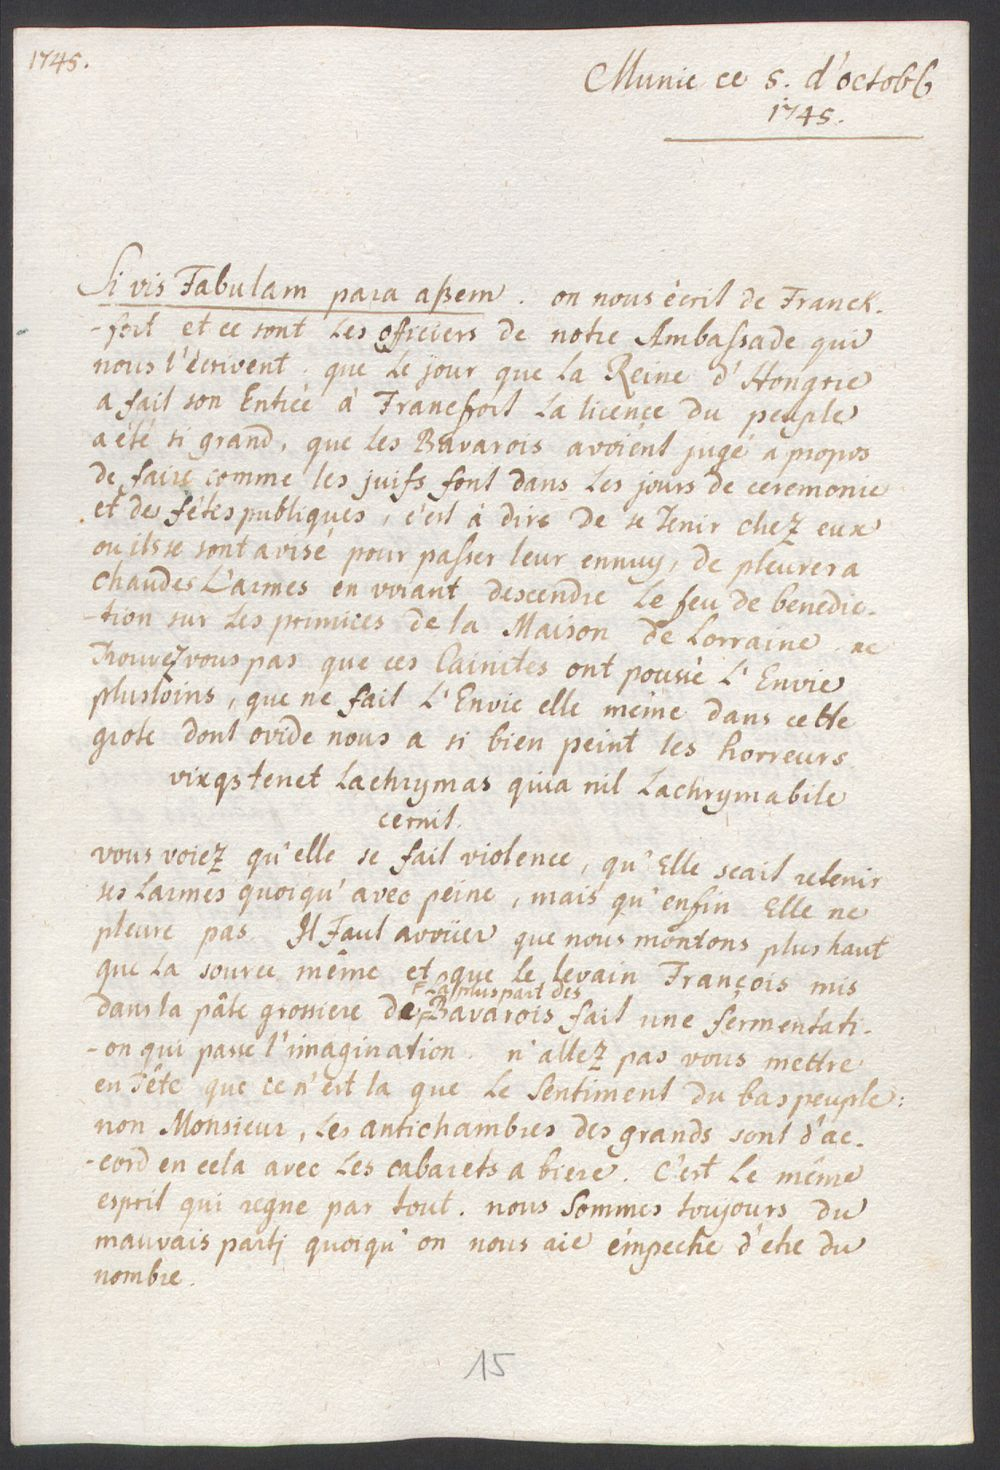 1745.
Munic ce 5. d'octobb
1745.
Si vis Fabulam para aßem. on nous écrit de Franck-
-fort et ce sont les officiers de notre Ambassade qui
nous l'écrivent. que le jour que la Reine d'Hongrie
a fait son Entrée à Francfort la licence du peuple
a été si grand, que les Bavarois avoient jugé a propos
de faire comme les juifs font dans les jours de ceremonie
et de fétes publiques, c'est à dire de se Tenir chez eux
ou ils se sont avisé pour passer leur ennuy, de pleurer a
chaudes Larmes en voiant descendre le feu de benedic-
-tion sur les primices de la Maison de Lorraine. ne
Trouvez vous pas que ces Cainites ont poussé L'Envie
plusloins, que ne fait L'Envie elle méme dans cette
grote dont ovide nous a si bien peint les horreurs
vixqs tenet Lachrymas quia nil Lachrymabile
cernit.
vous voiez qu'elle se fait violence, qu'Elle scait retenir
ses Larmes quoiqu'avec peine, mais qu'enfin Elle ne
pleure pas. Il Faut avoüer que nous montons plus haut
que la source même et que le levain François mis
la pluspart des
dans la pâte grossiere de Bavarois fait une fermentati-
-on qui passe l'imagination. n'allez pas vous mettre
en Tête que ce n'est la que le Sentiment du bas peuple:
non Monsieur, les antichambres des grands sont d'ac-
-cord en cela avec les cabarets a biere. C'est le même
esprit qui regne par tout. nous Sommes toujours du
mauvais partj quoiqu'on nous aie émpeche d'etre du
nombre.
15